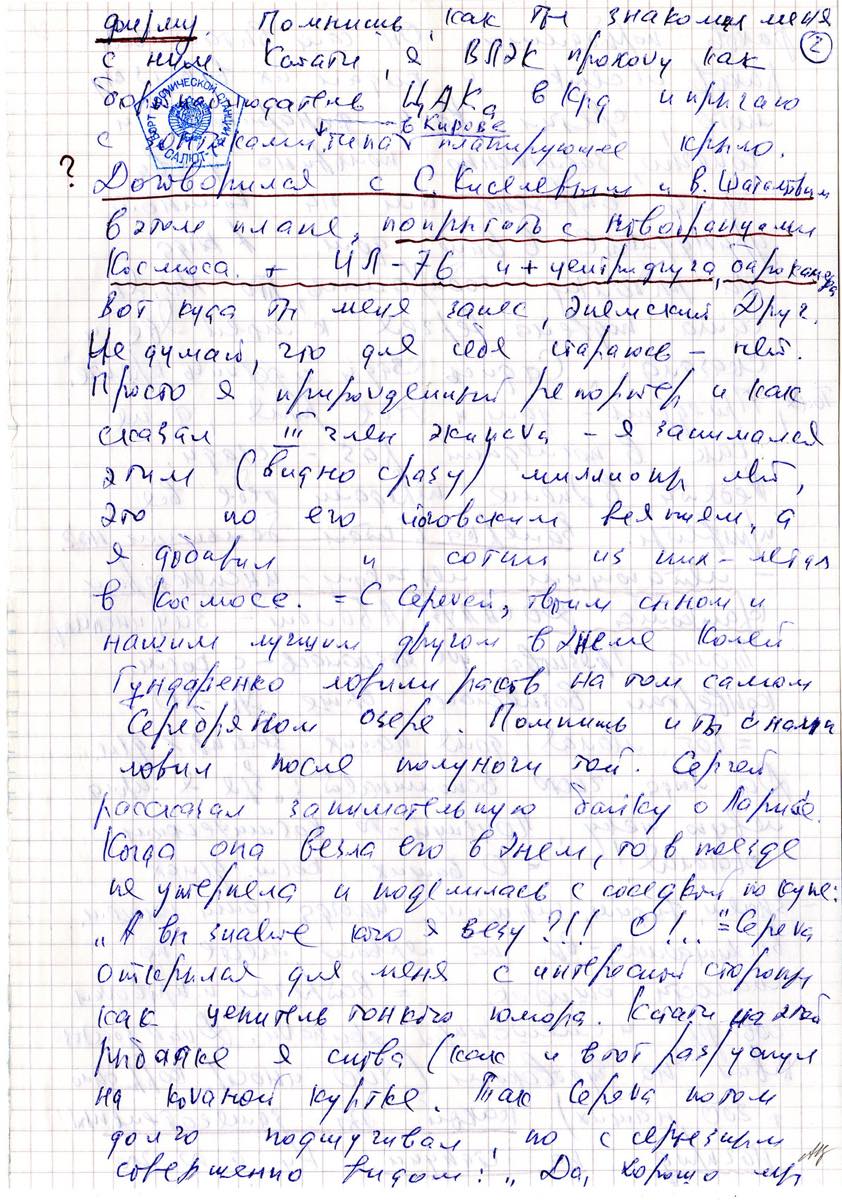 фирму. Помнишь, как ты знакомил меня
с ним. Кстати, я ВЛЭК прохожу как ②
борт наблюдатель ЦАКа в Крд и прыгаю
БОРТ КОСМИЧЕСКОЙ СТАНЦИИ
САЛЮТ-
в Кирове
с типа планирующее крыло.
? Договорился с С. Киселевым и В. Шаталовым
в этом плане, попрыгать с
Космоса. + ИЛ-76 и + центрифуга, барокамера
Вот куда ты меня занес, Энемский Друг.
Не думай, что для себя стараюсь – нет.
Просто я прирожденный репортер и как
сказал III член экипажа – я занимался
этим (видно сразу) миллионы лет,
это по его йоговским веяниям, а
я добавил и сотни из них – летал
в Космосе. = С Сережей, твоим сыном и
нашим лучшим другом в Энеме Колей
Гундаренко ловили раков на том самом
Серебряном озере. Помнишь и ты с нами
ловил после полуночи той. Сергей
рассказал занимательную байку о Ларисе.
Когда она везла его в Энем, то в поезде
не утерпела и поделилась с соседкой по купе:
„А вы знаете кого я везу?!! О!.." = Сережа
открылся для меня с интересной стороны
как ценитель тонкого юмора. Кстати на этой
рыбалке я снова (как и в тот раз) уснул
на кожаной куртке. Так Сережа потом
долго подшучивал, но с серьезным
совершенно видом: „Да, хорошо мы